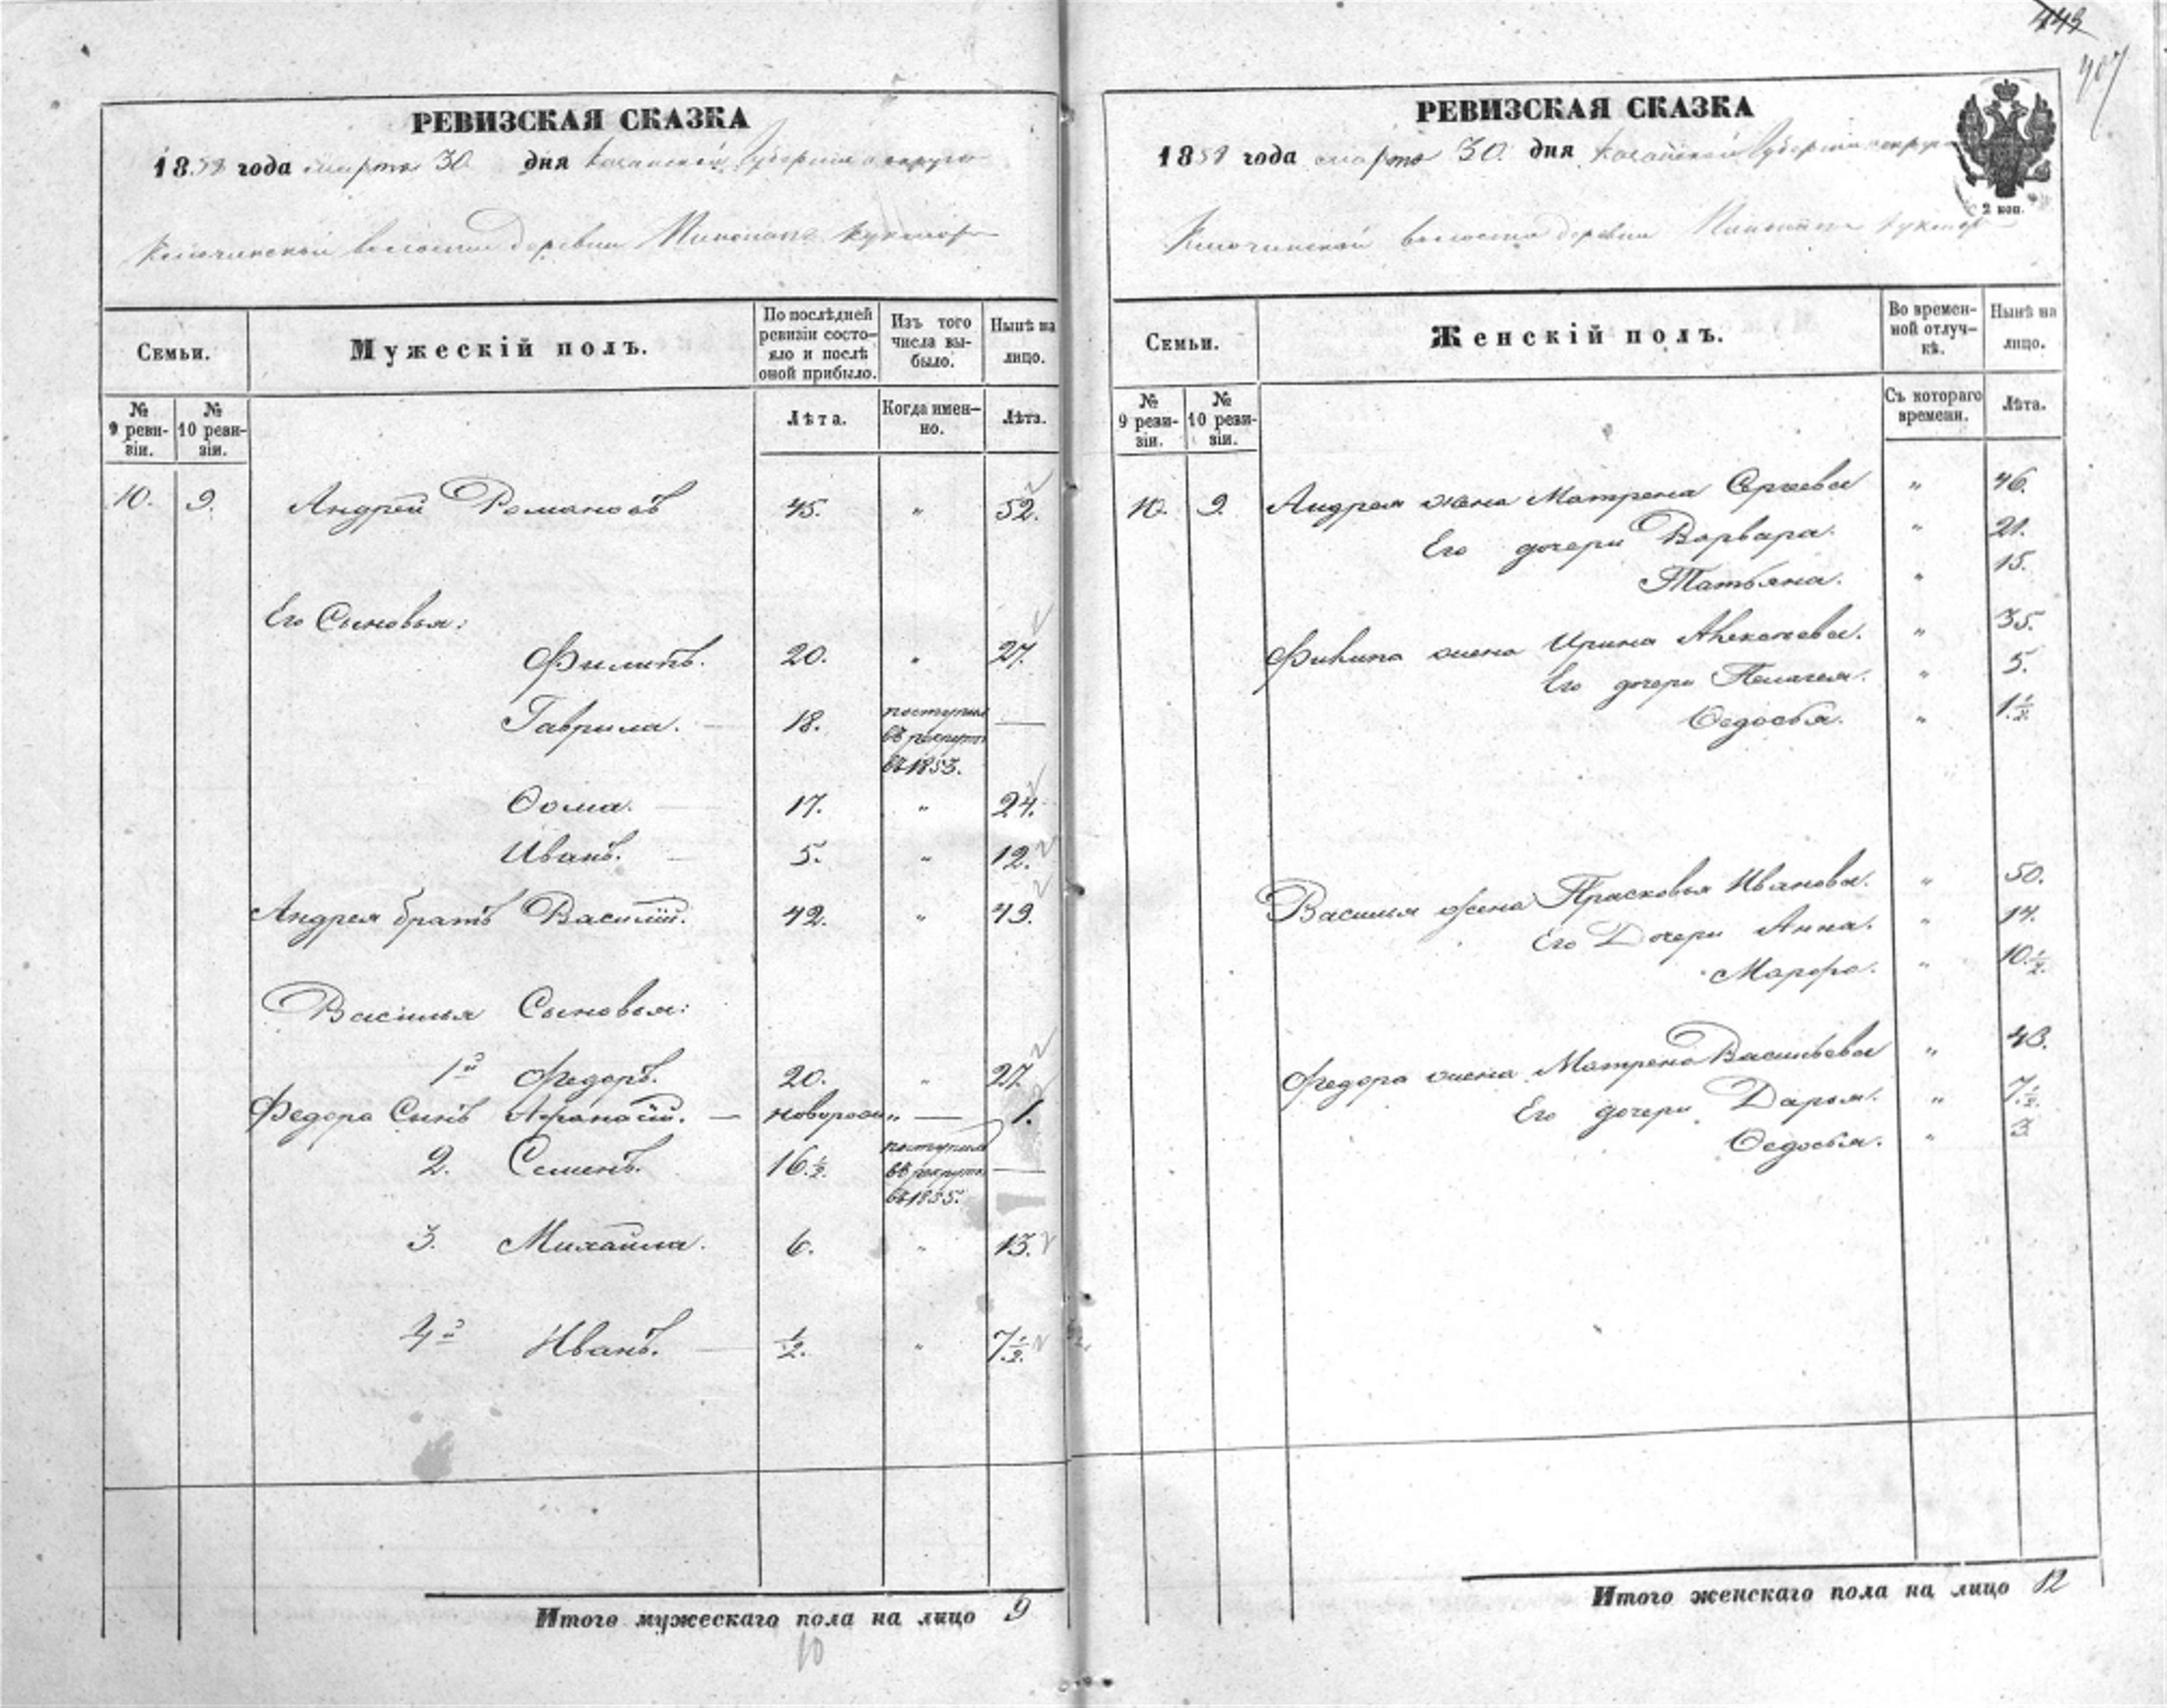 443
407
РЕВИЗСКАЯ СКАЗКА
1858 года марта 30. дня Казанской Губернiи и округа
волости деревни
Семьи.
Мужескiй полъ.
По послѣдней ревизiи состо-
яло и послѣ
оной прибыло.
Изъ того
числа вы-
было.
Нынѣ на
лицо.
№
9 реви-
зiи.
№
10 реви-
зiи.
Лѣта.
Когда имен-
но.
Лѣта.
10. 9. Андрей Романовъ 45. " 52.
Его Сыновья:
Филипъ. 20. " 27.
Гаврила. — 18. поступилъ въ рекруты въ 1853. —
Ѳома. — 17. " 24.
Иванъ. — 5. " 12.
Андрея братъ Василiй. 42. " 49.
Василья Сыновья:
1й Федоръ. 20. " 27.
Федора Сынъ Афанасiй. — новорожд " — 1.
2. Семенъ. 16 1/2. поступилъ въ рекруты въ 1855. —
3. Михайла. 6. " 13.
4й Иванъ. — 1/2. " 7 1/2.
Итого мужескаго пола на лицо 9
10
РЕВИЗСКАЯ СКАЗКА
1858 года марта 30. дня Казанской Губернiи и округа
2 коп.
волости деревни
Семьи.
Женскiй полъ.
Во времен-
ной отлуч-
кѣ.
Нынѣ на
лицо.
№
9 реви-
зiи.
№
10 реви-
зiи.
Съ котораго
времени.
Лѣта.
10. 9. Андрея жена Матрена Сергеева " 46.
Его дочери Варвара. " 21.
Татьяна. " 15.
Филипа жена Ирина Алексеева. " 35.
Его дочери Пелагея. " 5.
Ѳедосья. " 1 1/2.
Василья жена Прасковья Иванова. " 50.
Его Дочери Анна. " 14.
Марфа. " 10 1/2.
Федора жена Матрена Васильева " 43.
Его дочери Дарья. " 7 1/2.
Ѳедосья. " 3.
Итого женскаго пола на лицо 12